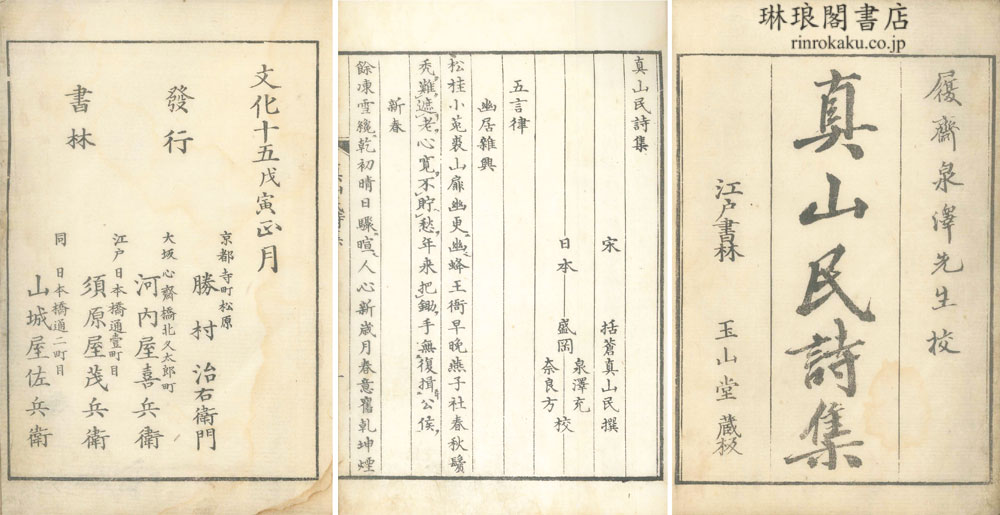 琳琅閣書店
rinrokaku.co.jp
履齋泉澤先生校
真山民詩集
江戸書林　玉山堂藏板
真山民詩集
宋　括蒼真山民撰
日本　盛岡　泉澤充
奈良方　校
五言律
幽居雜興
松桂小菟裘山扉幽更幽蜂王衙早晚燕子社春秋鬢
禿難遮老心寬不貯愁年来把鋤手無復揖公侯
新春
餘凍雪纔乾初晴日驟暄人心新歳月春意舊乾坤煙
文化十五戊寅正月
發行
書林
京都寺町松原
勝村治右衛門
大坂心齋橋北久太郎町
河内屋喜兵衛
江戸日本橋通壹町目
須原屋茂兵衛
同　日本橋通二町目
山城屋佐兵衛